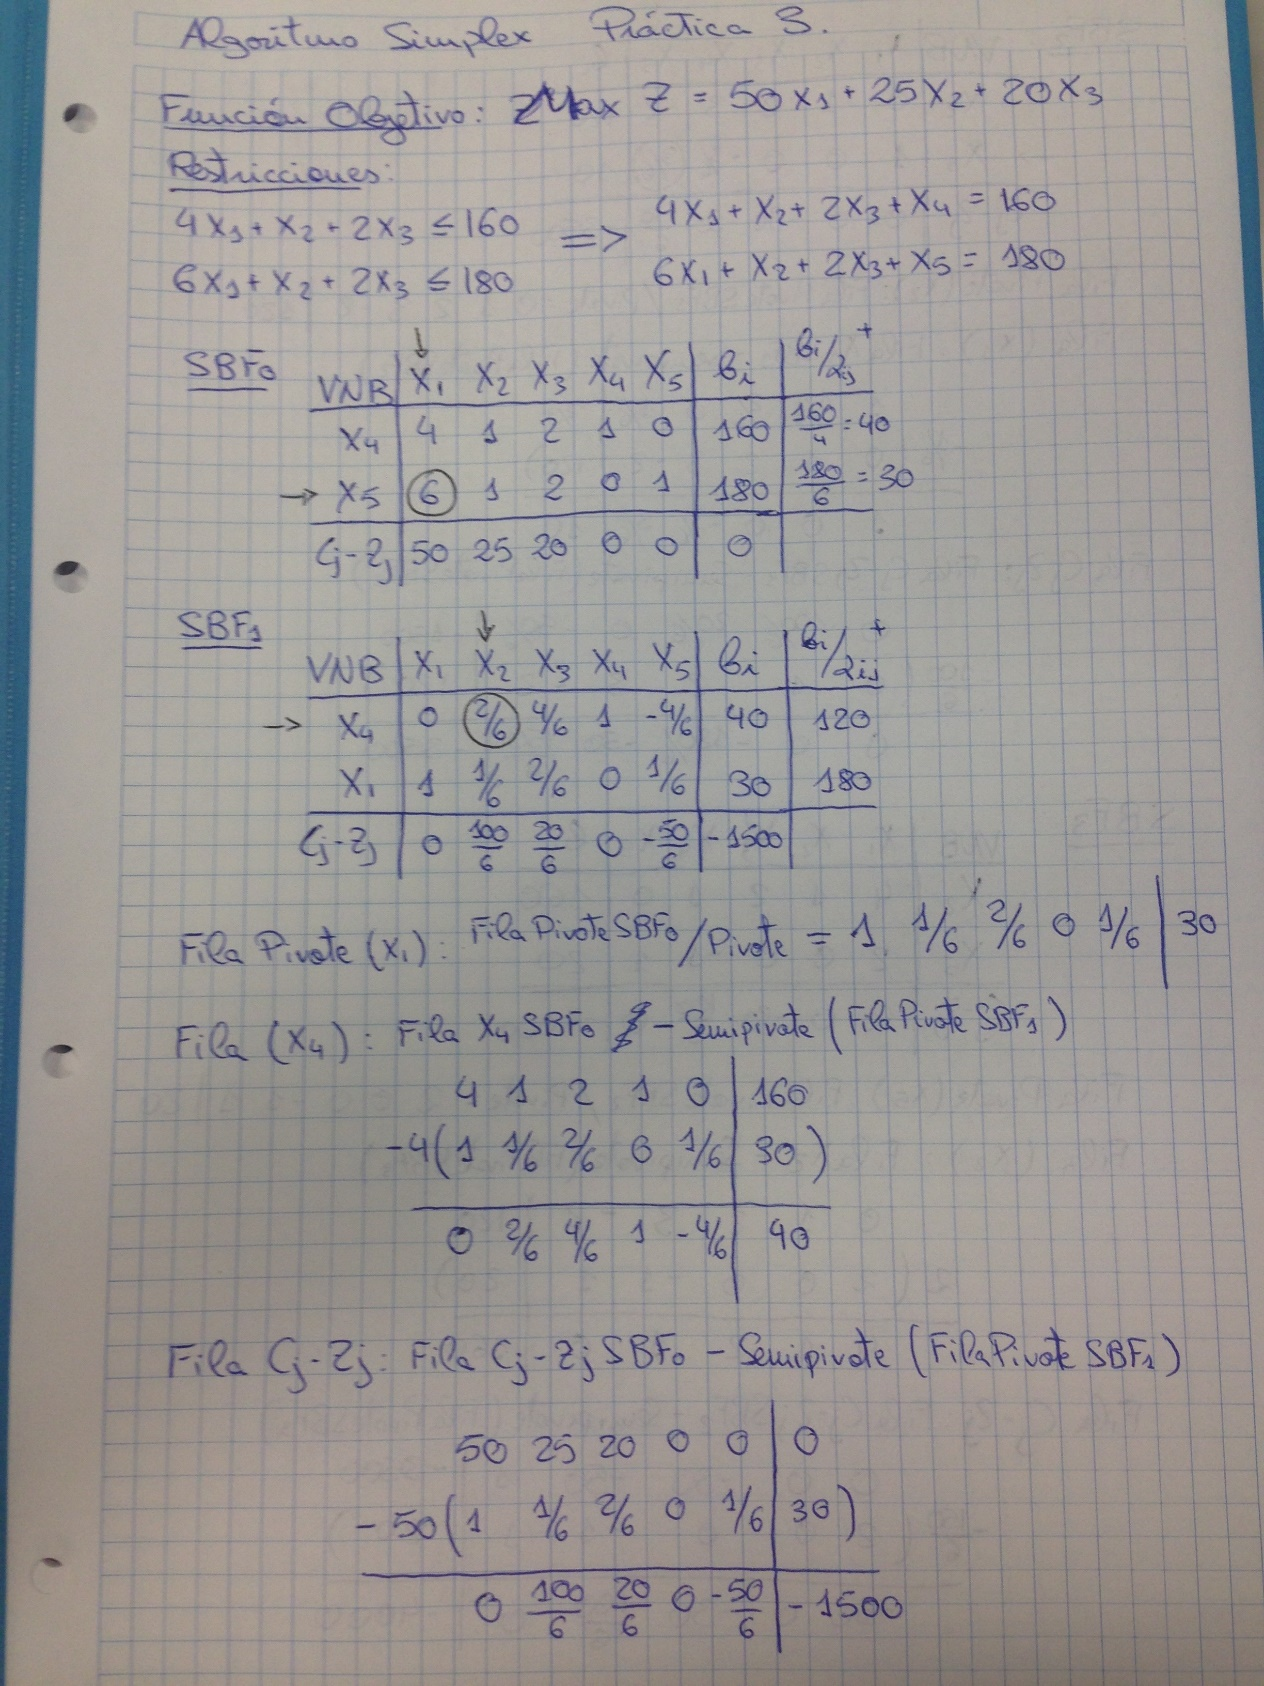 Algoritmo Simplex Práctica 3.
Función Objetivo: Max Z = 50x₁ + 25x₂ + 20x₃
Restricciones:
4x₁ + x₂ + 2x₃ ≤ 160 => 4x₁ + x₂ + 2x₃ + x₄ = 160
6x₁ + x₂ + 2x₃ ≤ 180 6x₁ + x₂ + 2x₃ + x₅ = 180
SBF₀ ↓
VNB | x₁ x₂ x₃ x₄ x₅ | bi | bi/aij +
x₄ | 4 1 2 1 0 | 160 | 160/4 = 40
→ x₅ | 6 1 2 0 1 | 180 | 180/6 = 30
Cj-Zj | 50 25 20 0 0 | 0 |
SBF₁ ↓
VNB | x₁ x₂ x₃ x₄ x₅ | bi | bi/aij +
→ x₄ | 0 2/6 4/6 1 -4/6 | 40 | 120
x₁ | 1 1/6 2/6 0 1/6 | 30 | 180
Cj-Zj | 0 100/6 20/6 0 -50/6 | -1500 |
Fila Pivote (x₁): Fila Pivote SBF₀ / Pivote = 1 1/6 2/6 0 1/6 | 30
Fila (x₄): Fila x₄ SBF₀ - Semipivote (Fila Pivote SBF₁)
4 1 2 1 0 | 160
-4( 1 1/6 2/6 0 1/6 | 30 )
0 2/6 4/6 1 -4/6 | 40
Fila Cj-Zj: Fila Cj-Zj SBF₀ - Semipivote (Fila Pivote SBF₁)
50 25 20 0 0 | 0
- 50( 1 1/6 2/6 0 1/6 | 30 )
0 100/6 20/6 0 -50/6 | -1500